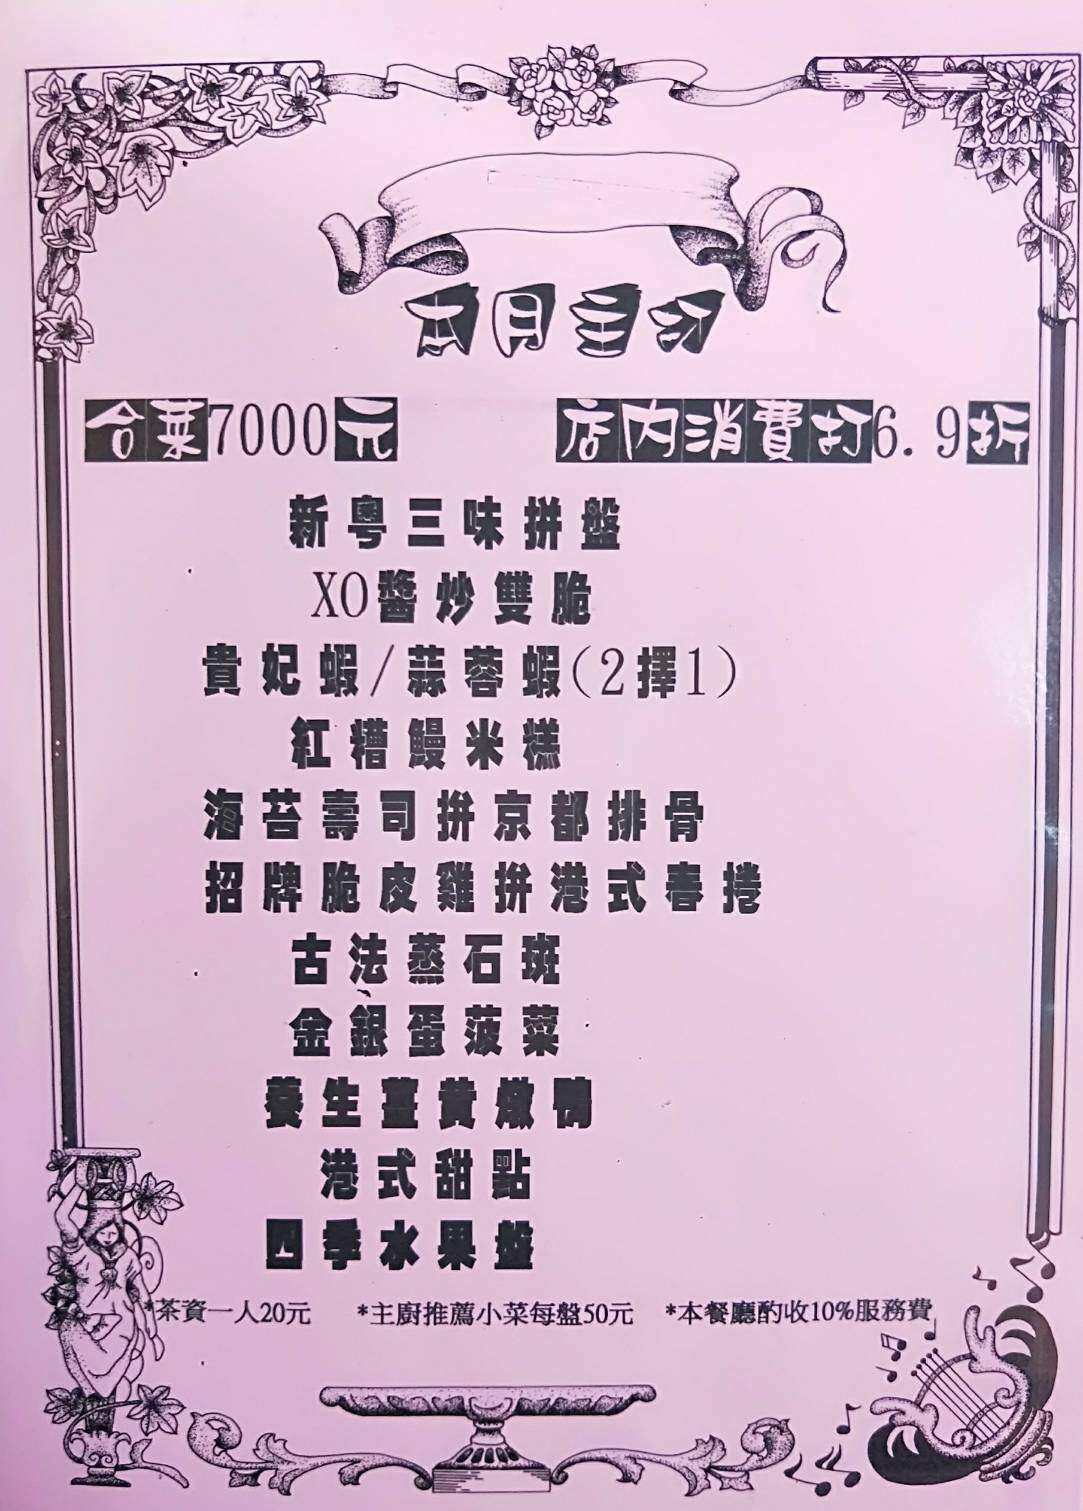 本月主打
合菜7000元 店內消費打6.9折
新粵三味拼盤
XO醬炒雙脆
貴妃蝦/蒜蓉蝦(2擇1)
紅糟鰻米糕
海苔壽司拼京都排骨
招牌脆皮雞拼港式春捲
古法蒸石斑
金銀蛋菠菜
養生薑黃燉鴨
港式甜點
四季水果盤
*茶資一人20元 *主廚推薦小菜每盤50元 *本餐廳酌收10%服務費